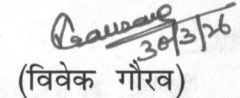 30/3/26
(विवेक गौरव)